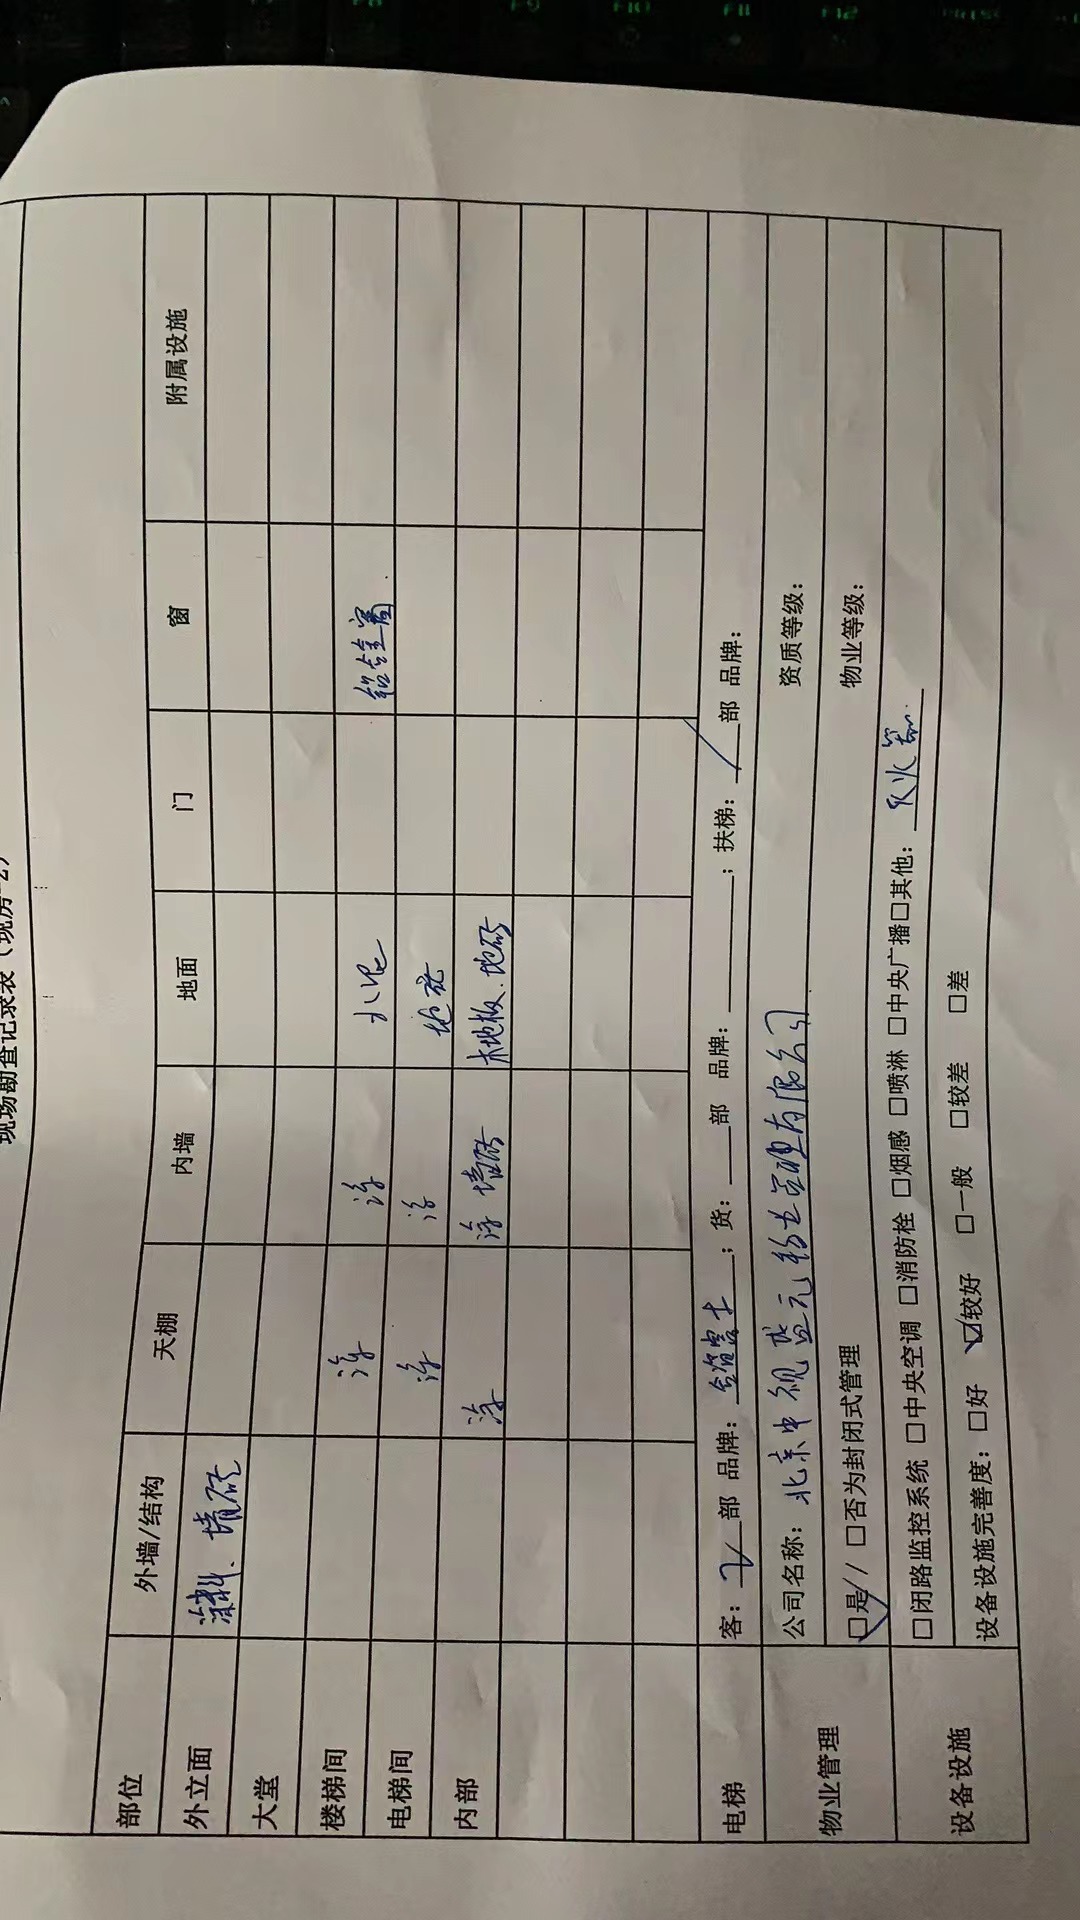 现场勘查记录表（现房-2）
部位 外墙/结构 天棚 内墙 地面 门 窗 附属设施
外立面 涂料、墙砖
大堂
楼梯间 涂 涂 水泥 铝合金窗
电梯间 涂 涂 地砖
内部 涂 涂 墙砖 木地板、地砖
电梯 客： 部 品牌： ；货： 部 品牌： ；扶梯： / 部 品牌：
物业管理 公司名称：北京中视 元物业管理有限公司 资质等级：
☑是/ □否为封闭式管理 物业等级：
设备设施 □闭路监控系统 □中央空调 □消防栓 □烟感 □喷淋 □中央广播 □其他：灭火器
设备设施完善度： □好 ☑较好 □一般 □较差 □差
F8 F9 F10 F11 F12